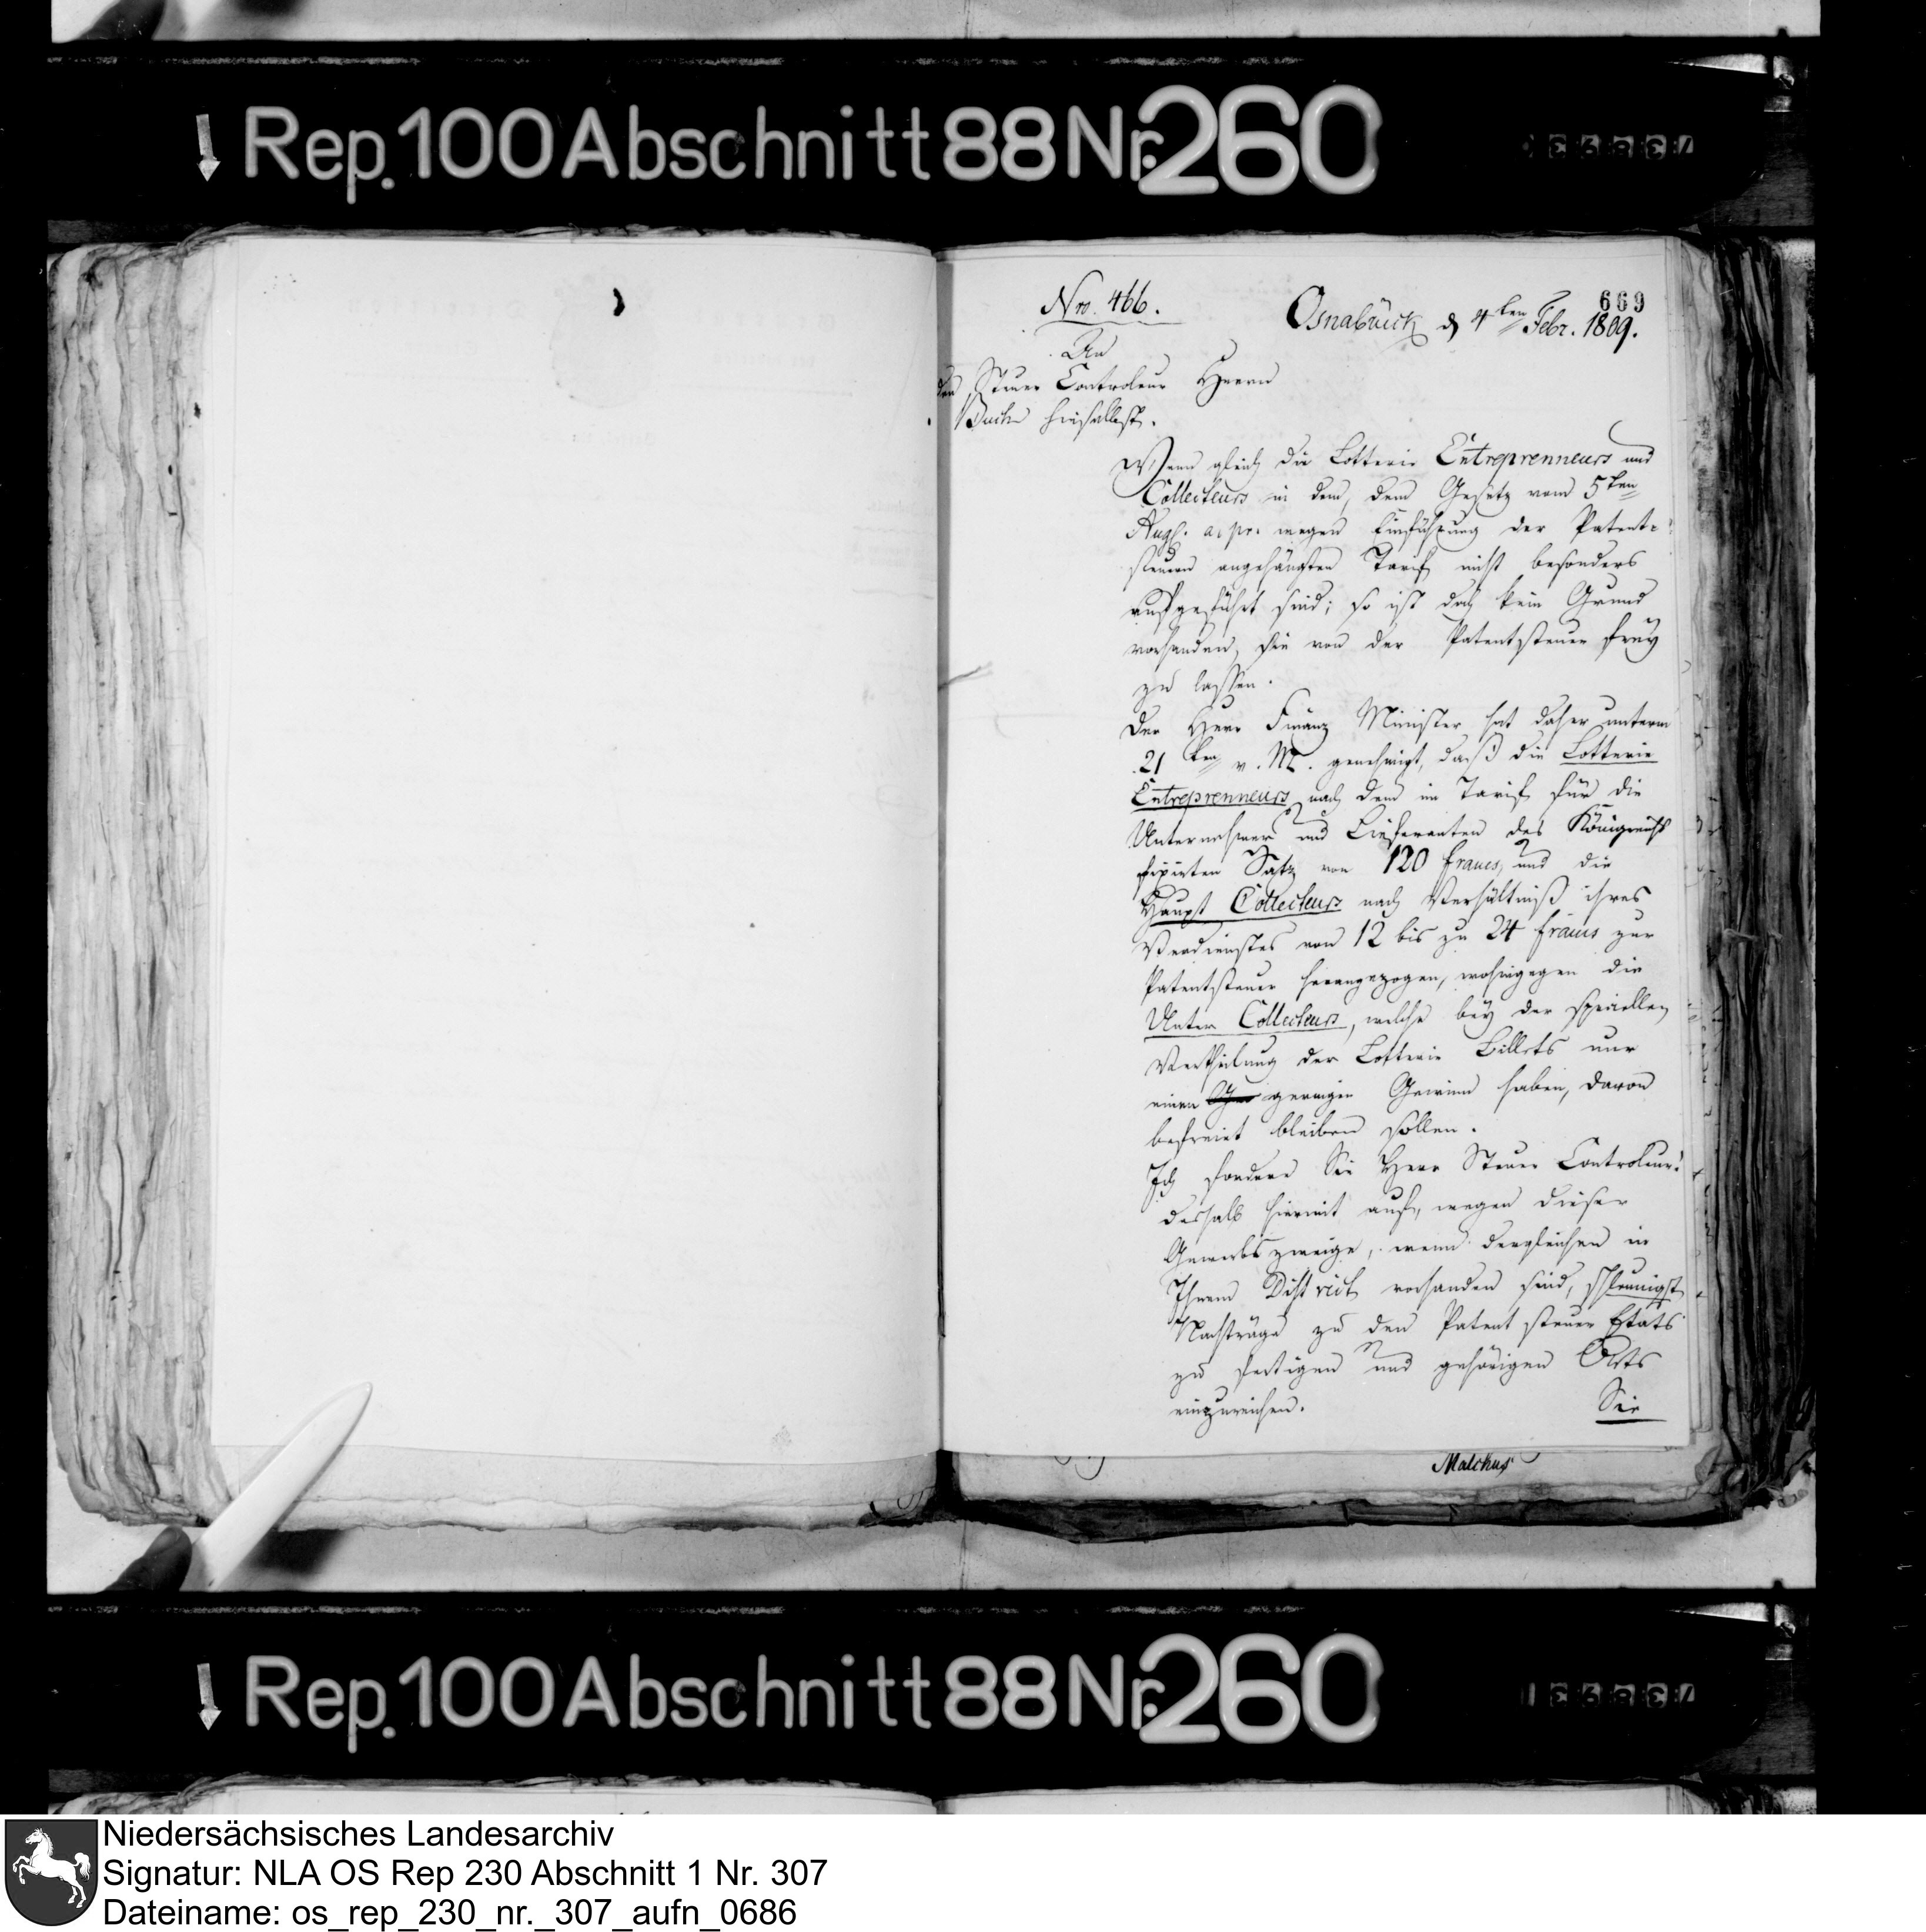 Rep. 100 Abschnitt 88 Nr. 260
669
Nro. 466.
Osnabrück d 4ten Febr. 1809.
An
den Steuer Controleur Herrn
hieselbst.
Wenn gleich die Lotterie Entreprenneurs und
Collecteurs in dem, dem Gesetz vom 5ten
Aug. a. pr. wegen Einführung der Patent=
steuern angehängten Tarif nicht besonders
aufgeführt sind; so ist doch kein Grund
vorhanden, sie von der Patentsteuer frey
zu lassen.
Der Herr Finanz Minister hat daher unterm
21ten v. M. genehmigt, daß die Lotterie
Entreprenneurs nach dem im Tarif für die
Unternehmer und Lieferanten des Königreichs
fixirten Satz von 120 francs, und die
Haupt Collecteurs nach Verhältniß ihres
Verdienstes von 12 bis zu 24 francs zur
Patentsteuer herangezogen, wohingegen die
Unter Collecteurs, welche bey der speciellen
Vertheilung der Lotterie Billets nur
einen geringen Gewinn haben, davon
befreiet bleiben sollen.
Ich fordere Sie Herr Steuer Controleur!
deshalb hiermit auf, wegen dieser
Gewerbszweige, wenn dergleichen in
Ihrem District vorhanden sind, schleunigst
Nachträge zu den Patentsteuer Etats
zu fertigen und gehörigen Orts
einzureichen.
Sie
Malchus
Rep. 100 Abschnitt 88 Nr. 260
Niedersächsisches Landesarchiv
Signatur: NLA OS Rep 230 Abschnitt 1 Nr. 307
Dateiname: os_rep_230_nr._307_aufn_0686